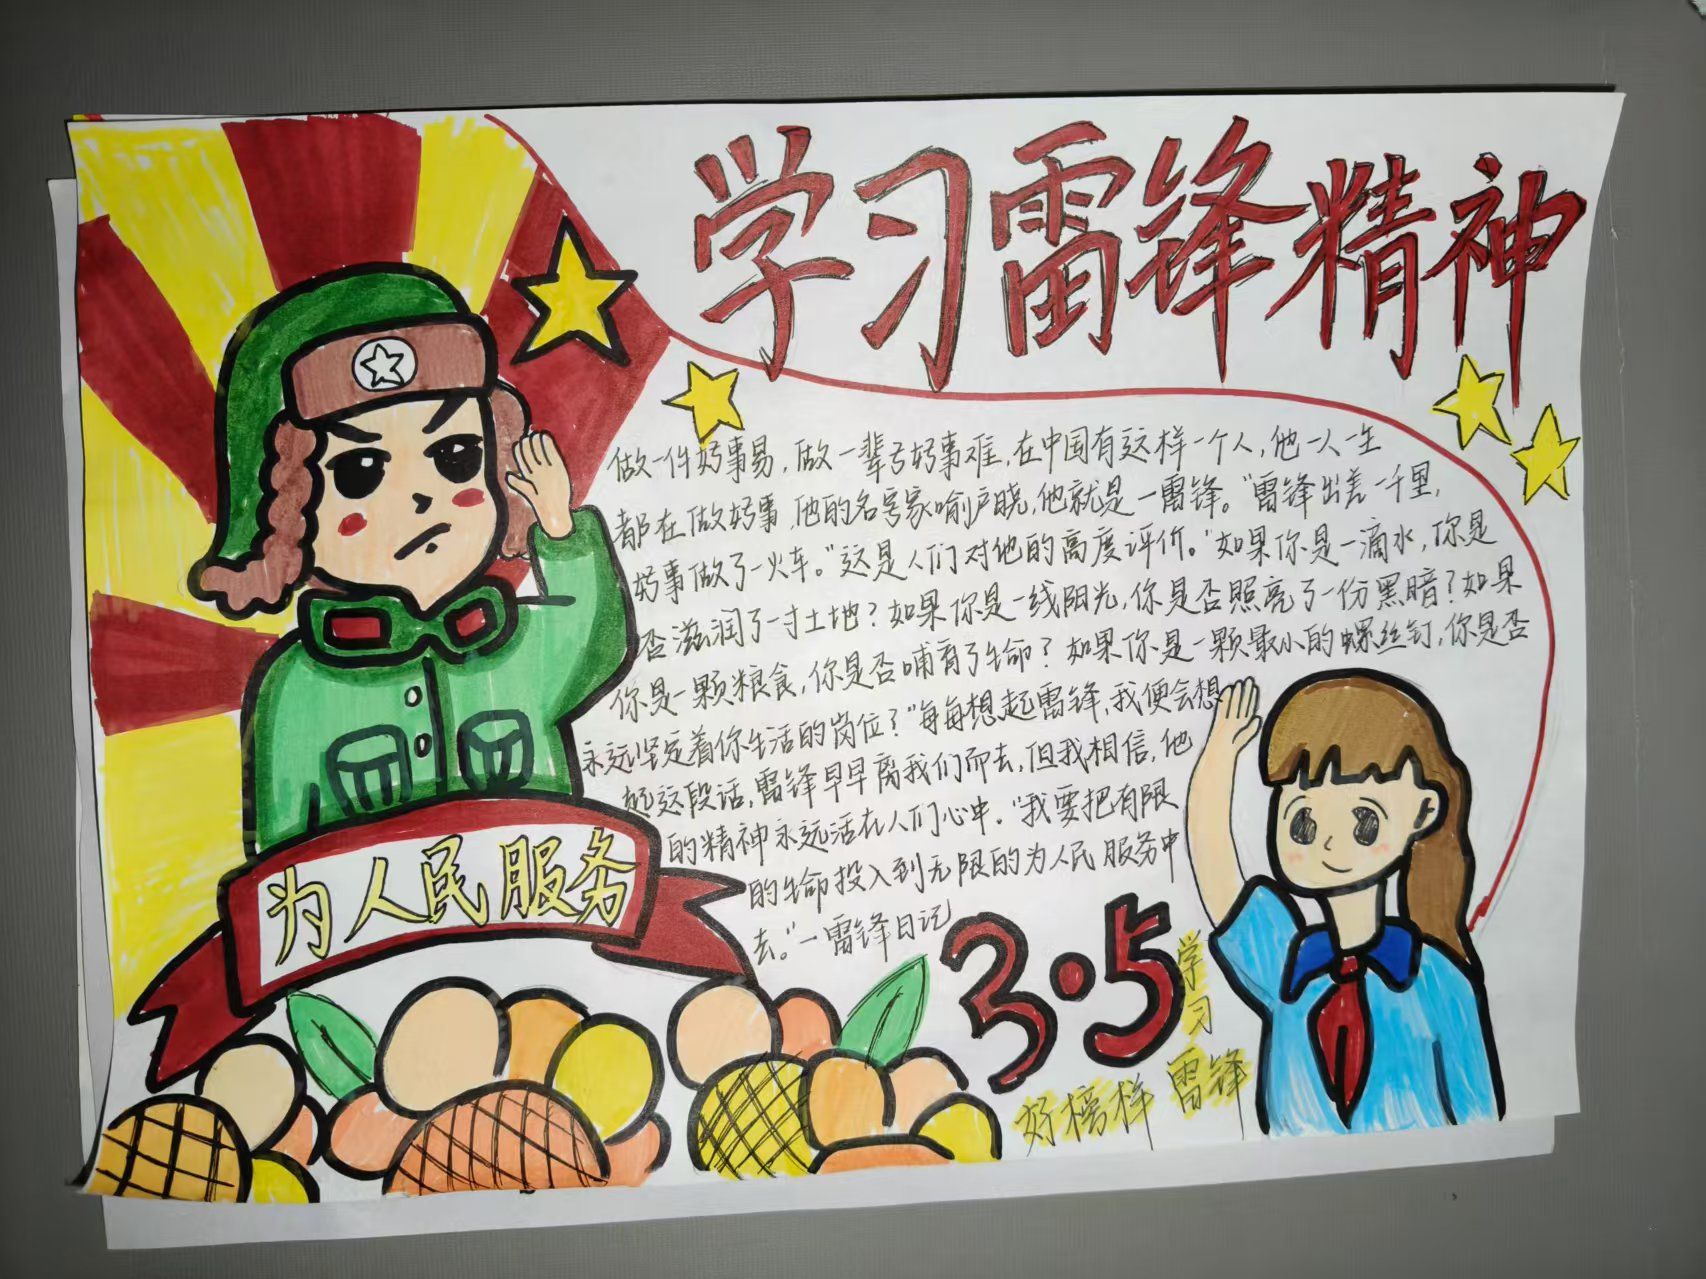 学习雷锋精神
做一件好事易，做一辈子好事难，在中国有这样一个人，他一人一生
都在做好事，他的名字家喻户晓，他就是一雷锋。“雷锋出差一千里，
好事做了一火车。”这是人们对他的高度评价。“如果你是一滴水，你是
否滋润了一寸土地？如果你是一线阳光，你是否照亮了一份黑暗？如果
你是一颗粮食，你是否哺育了生命？如果你是一颗最小的螺丝钉，你是否
永远坚定着你生活的岗位？”每每想起雷锋，我便会想
起这段话，雷锋早早离我们而去，但我相信，他
的精神永远活在人们心中。“我要把有限
的生命投入到无限的为人民服务中
去。”一雷锋日记
为人民服务
3·5
学习
雷锋
好榜样